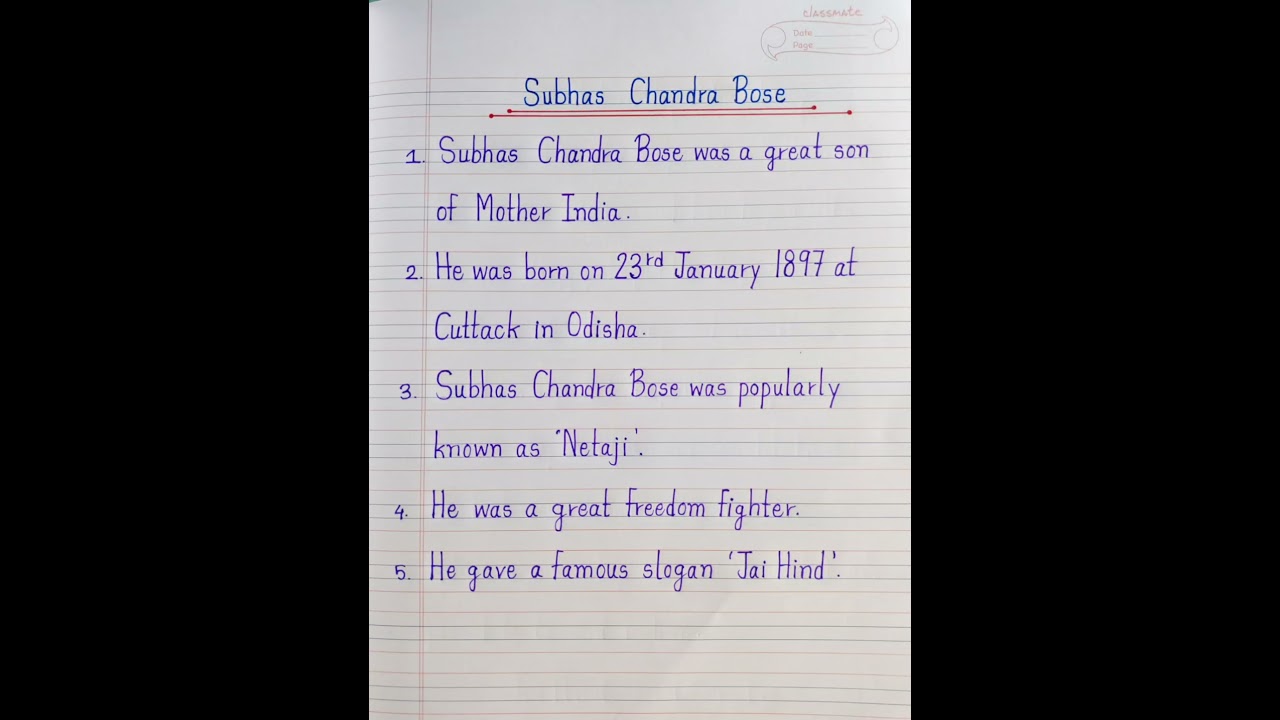 classmate
Date
Page
Subhas Chandra Bose
1. Subhas Chandra Bose was a great son
of Mother India.
2. He was born on 23rd January 1897 at
Cuttack in Odisha.
3. Subhas Chandra Bose was popularly
known as 'Netaji'.
4. He was a great freedom fighter.
5. He gave a famous slogan 'Jai Hind'.